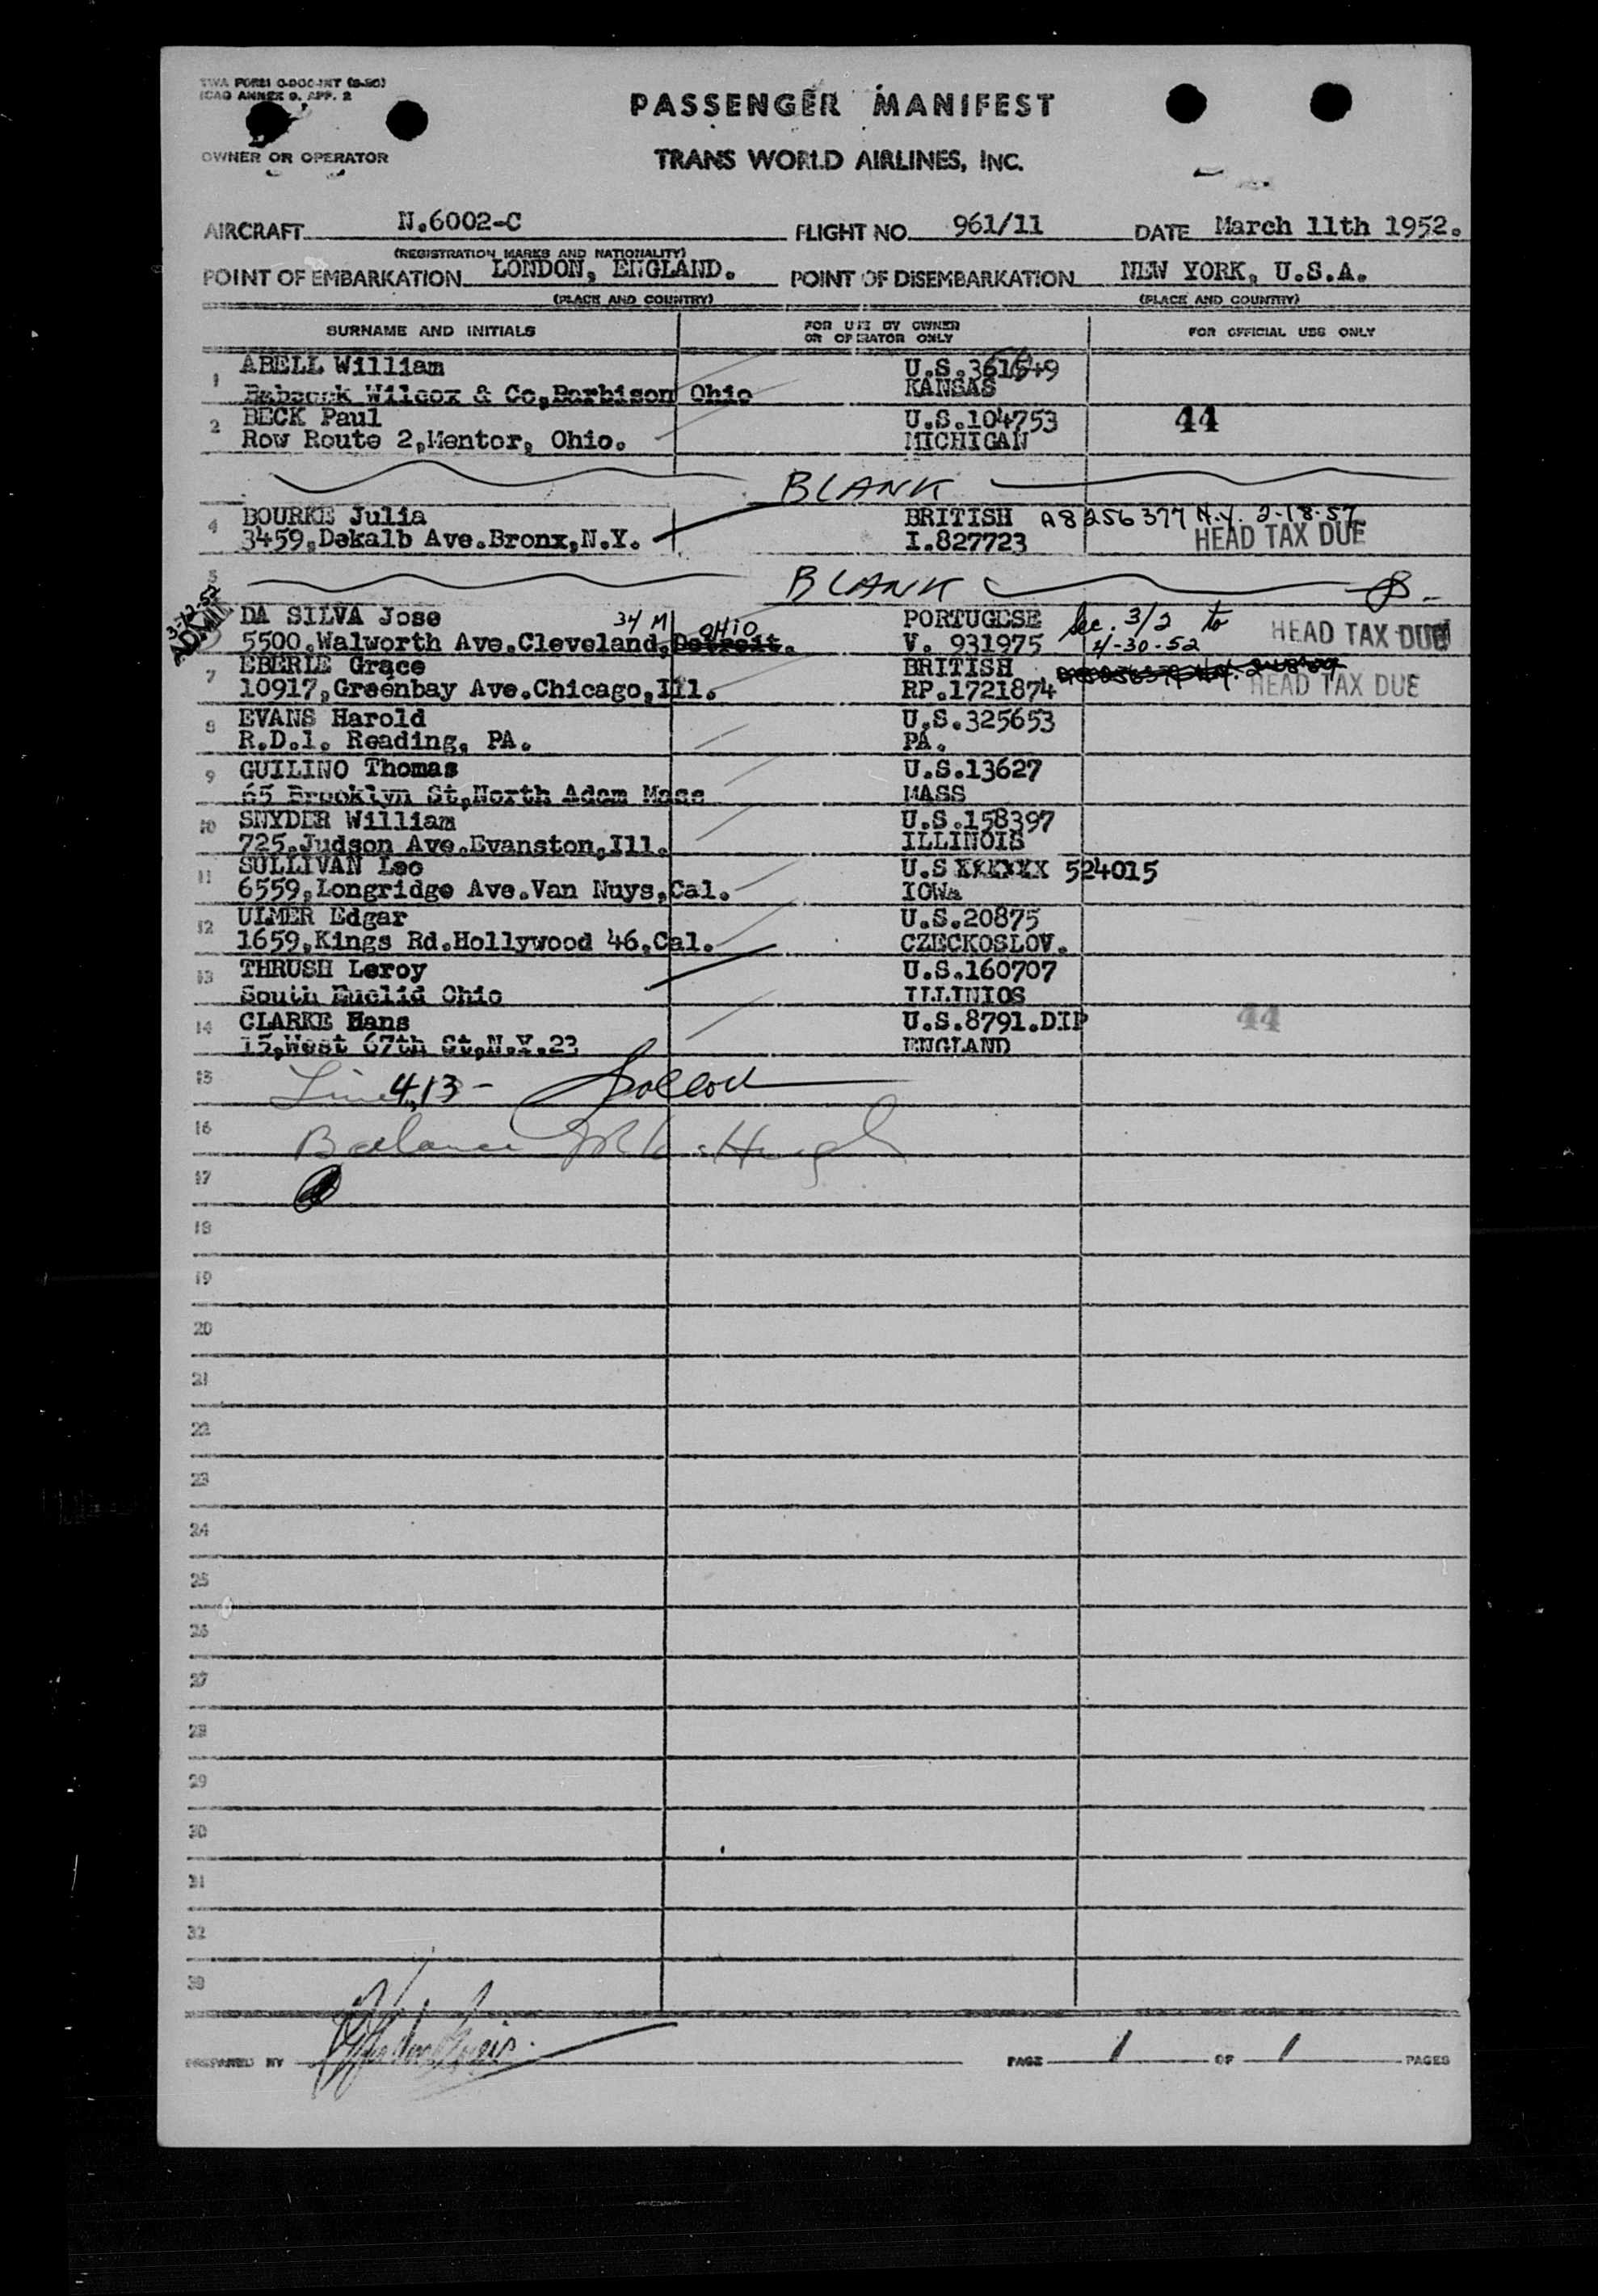 TWA FORM
ICAO ANNEX 9, APP. 2
PASSENGER MANIFEST
OWNER OR OPERATOR
TRANS WORLD AIRLINES, INC.
AIRCRAFT N.6002-C FLIGHT NO 961/11 DATE March 11th 1952.
(REGISTRATION MARKS AND NATIONALITY)
POINT OF EMBARKATION LONDON, ENGLAND. POINT OF DISEMBARKATION NEW YORK, U.S.A.
(PLACE AND COUNTRY) (PLACE AND COUNTRY)
SURNAME AND INITIALS FOR USE BY OWNER OR OPERATOR ONLY FOR OFFICIAL USE ONLY
1 ABELL William U.S.361549
Babcock Wilcox & Co,Barbison Ohio KANSAS
2 BECK Paul U.S.104753 44
Row Route 2,Mentor, Ohio. MICHIGAN
BLANK
4 BOURKE Julia BRITISH A8 256 377 N.Y. 2-18-57
3459,Dekalb Ave.Bronx,N.Y. I.827723 HEAD TAX DUE
5 BLANK
3-12-52 ADMIT
DA SILVA Jose 34 M PORTUGESE Sec. 3/2 to HEAD TAX DUE
5500,Walworth Ave.Cleveland,Detroit. OHIO V. 931975 4-30-52
7 EBERLE Grace BRITISH
10917,Greenbay Ave.Chicago,Ill. RP.1721874 HEAD TAX DUE
8 EVANS Harold U.S.325653
R.D.1. Reading, PA. PA.
9 GUILINO Thomas U.S.13627
65 Brooklyn St,North Adam Mass MASS
10 SNYDER William U.S.158397
725,Judson Ave.Evanston,Ill. ILLINOIS
11 SULLIVAN Leo U.S XXXXXX 524015
6559,Longridge Ave.Van Nuys,Cal. IOWA
12 ULMER Edgar U.S.20875
1659,Kings Rd.Hollywood 46,Cal. CZECKOSLOV.
13 THRUSH Leroy U.S.160707
South Euclid Ohio ILLINIOS
14 CLARKE Hans U.S.8791.DIP 44
15,West 67th St,N.Y.23 ENGLAND
15 Line 4,13 -
16 Balance
17
18
19
20
21
22
23
24
25
26
27
28
29
30
31
32
33
PREPARED BY PAGE 1 OF 1 PAGES